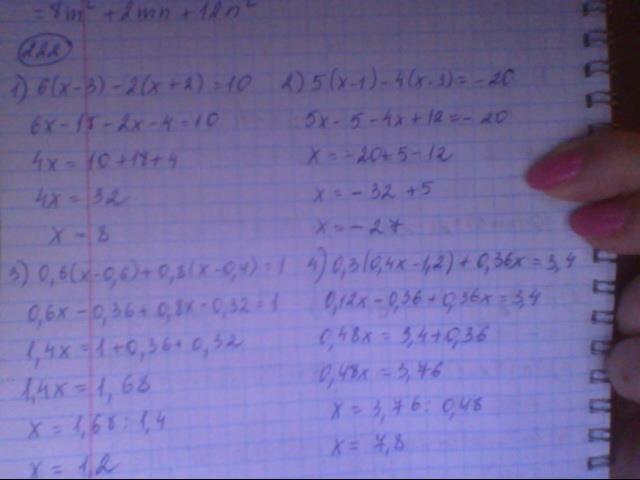 = 8m² + 2mn + 12n²
222
1) 6(x-3)-2(x+2)=10
6x-18-2x-4=10
4x=10+18+4
4x=32
x=8
2) 5(x-1)-4(x-3)=-20
5x-5-4x+12=-20
x=-20+5-12
x=-32+5
x=-27
3) 0,6(x-0,6)+0,8(x-0,4)=1
0,6x-0,36+0,8x-0,32=1
1,4x=1+0,36+0,32
1,4x=1,68
x=1,68:1,4
x=1,2
4) 0,3(0,4x-1,2)+0,36x=3,4
0,12x-0,36+0,36x=3,4
0,48x=3,4+0,36
0,48x=3,76
x=3,76:0,48
x=7,8